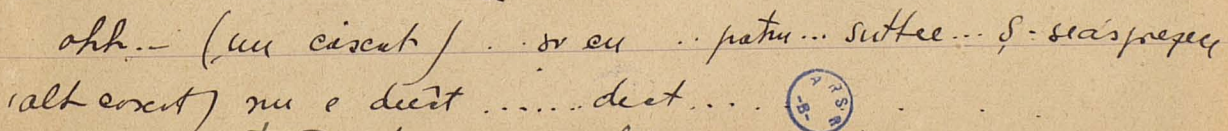 ohh.– (un căscat) .. și eu .. patru... suttee... ș-seasprezece
(alt căscat) nu e decît ....... decît....
ARSR -B-